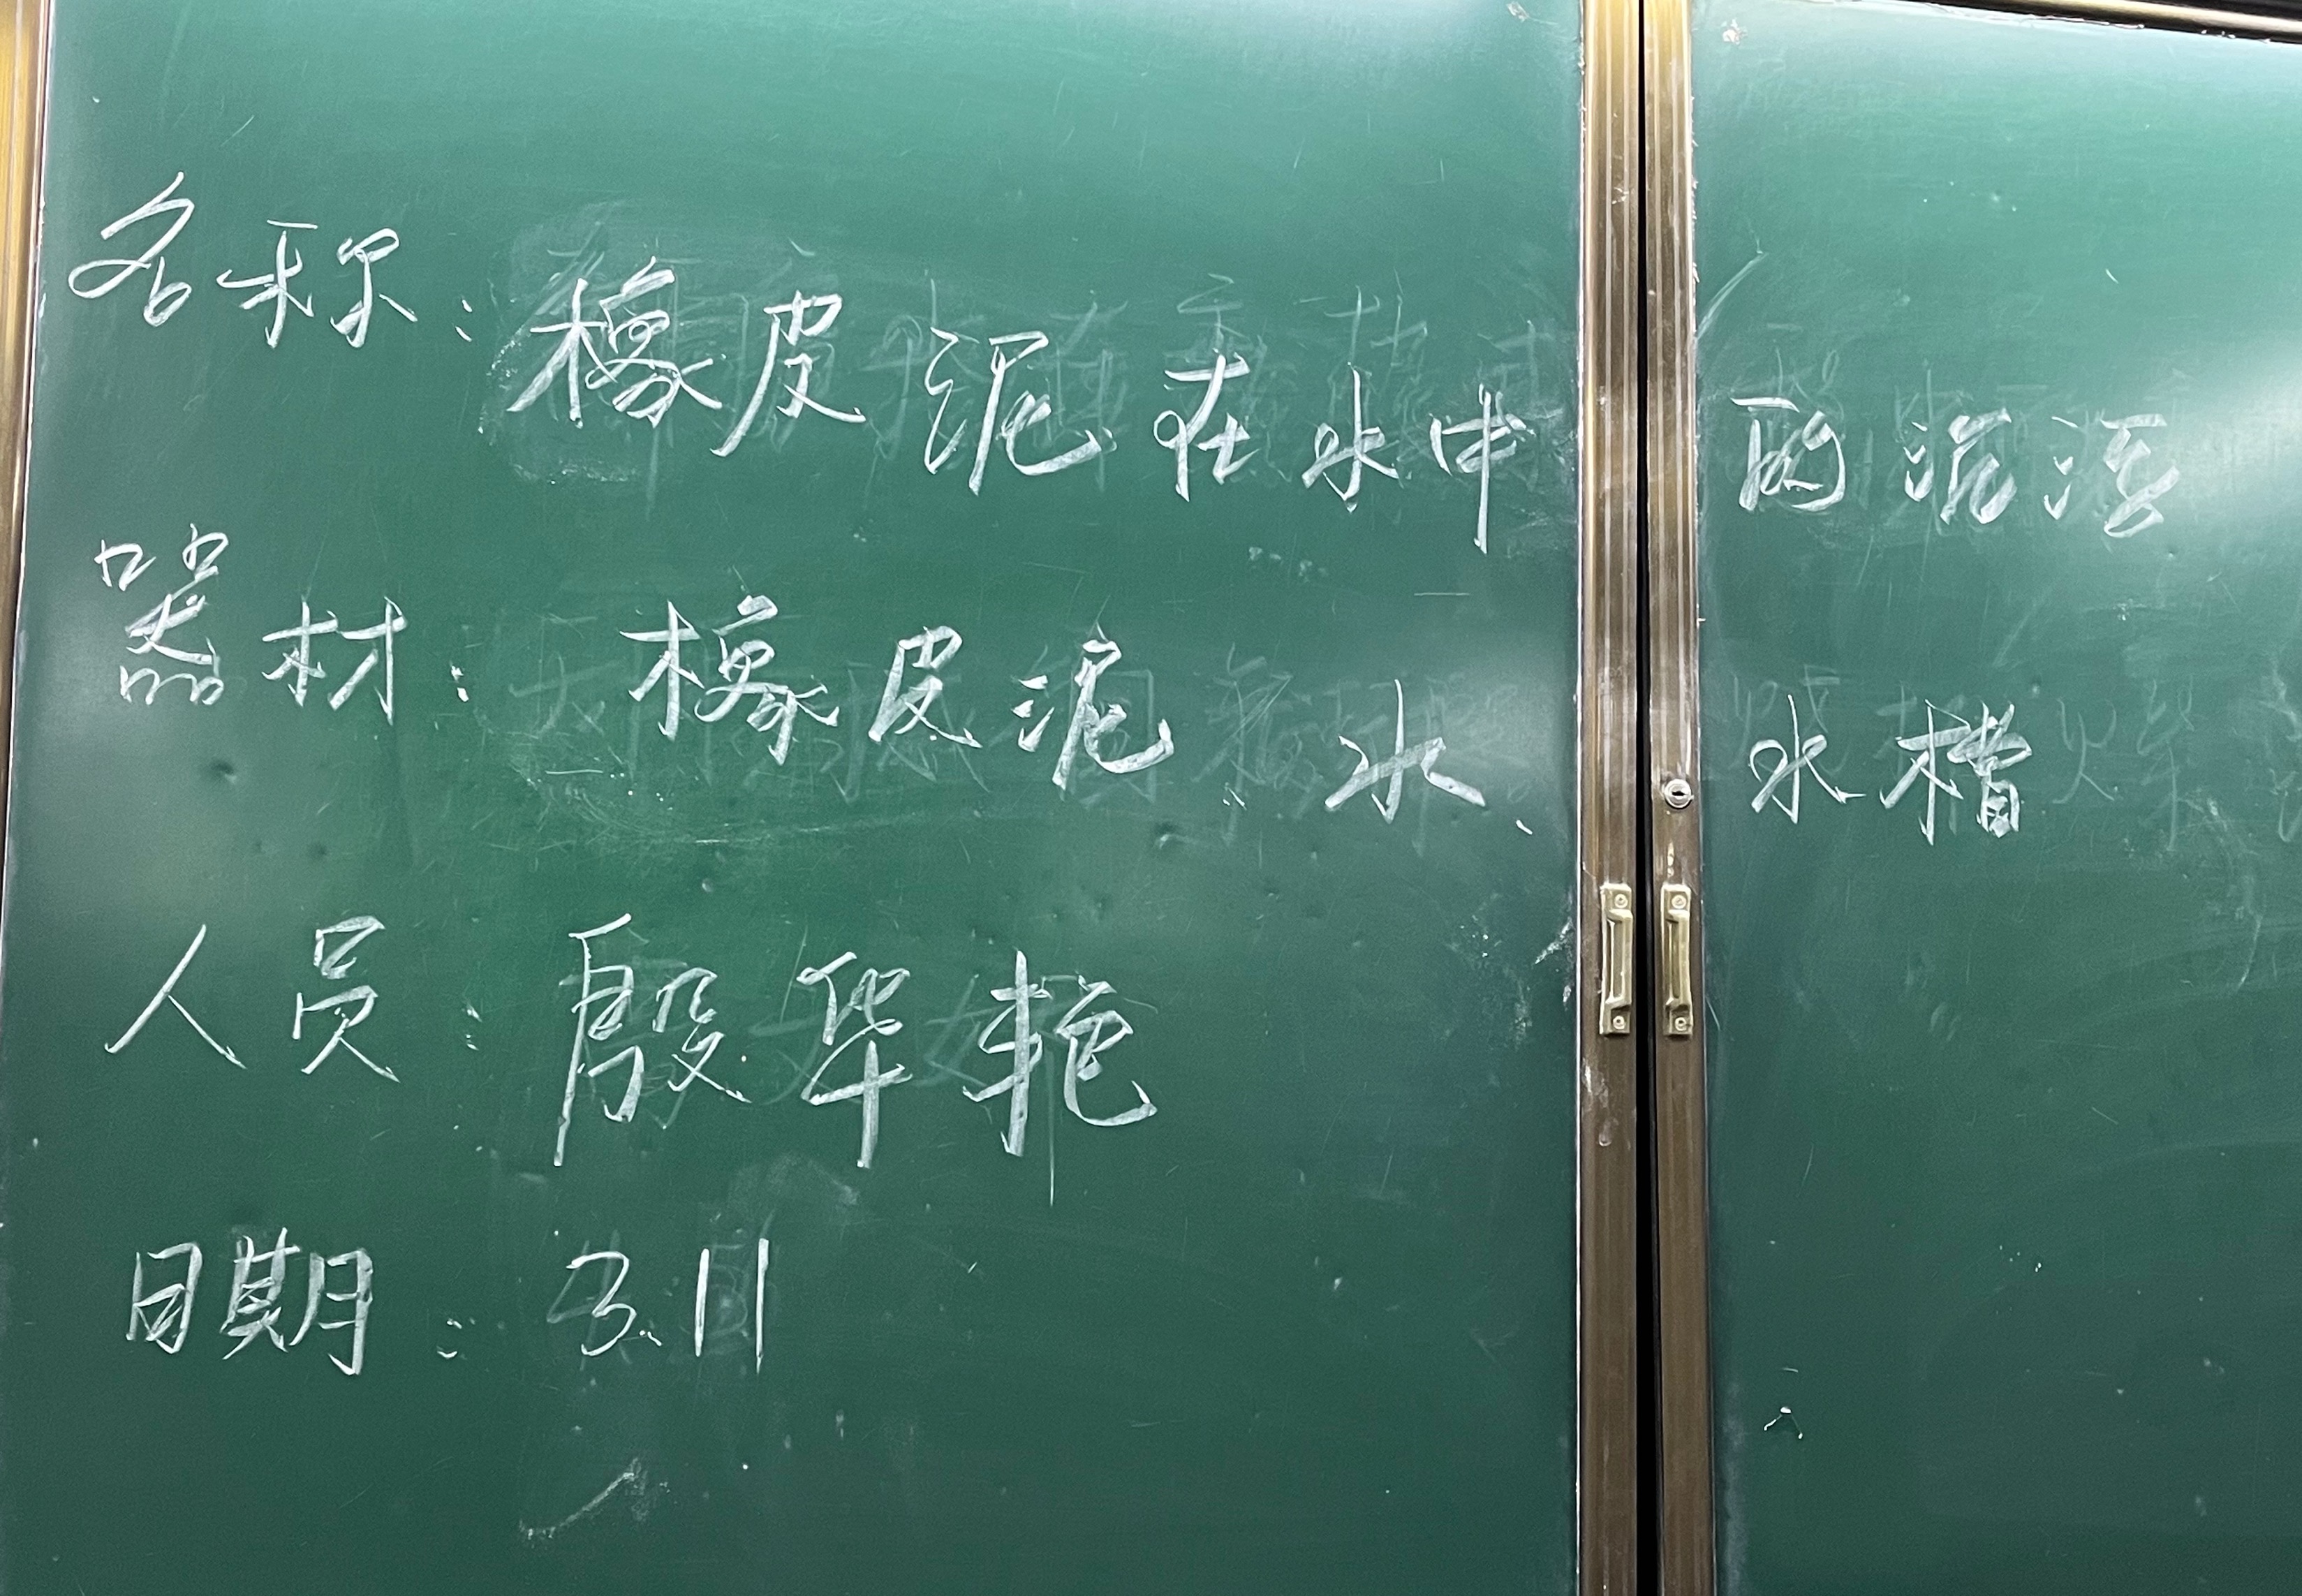 名称：橡皮泥在水中的沉浮
器材：橡皮泥、水、水槽
人员：殷华艳
日期：3.11